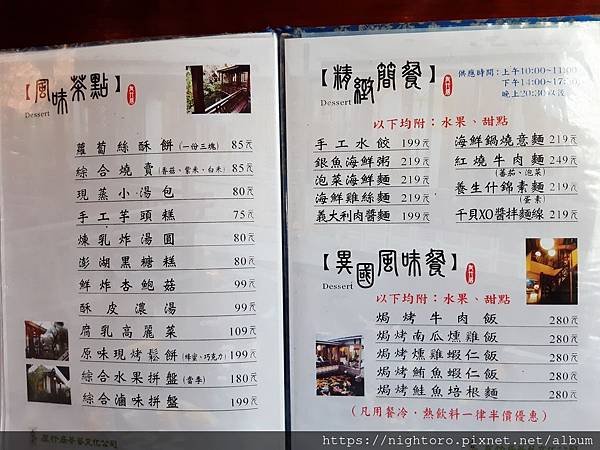 【風味茶點】
Dessert
蘿蔔絲酥餅(一份三塊) 85元
綜合燒賣(香菇、紫米、白米) 85元
現蒸小湯包 80元
手工芋頭糕 75元
煉乳炸湯圓 80元
澎湖黑糖糕 80元
鮮炸杏鮑菇 99元
酥皮濃湯 99元
腐乳高麗菜 109元
原味現烤鬆餅(蜂蜜、巧克力) 199元
綜合水果拼盤(當季) 180元
綜合滷味拼盤 199元
【精緻簡餐】
Dessert
供應時間:上午10:00~11:00
下午14:00~17:30
晚上20:30以後
以下均附:水果、甜點
手工水餃 199元
銀魚海鮮粥 219元
泡菜海鮮麵 219元
海鮮雞絲麵 219元
義大利肉醬麵 199元
海鮮鍋燒意麵 219元
紅燒牛肉麵 249元
(蕃茄、泡菜)
養生什錦素麵 219元
(蛋素)
干貝XO醬拌麵線 219元
【異國風味餐】
Dessert
以下均附:水果、甜點
焗烤牛肉飯 280元
焗烤南瓜燻雞飯 280元
焗烤燻雞蝦仁飯 280元
焗烤鮪魚蝦仁飯 280元
焗烤鮭魚培根麵 280元
(凡用餐冷、熱飲料一律半價優惠)
https://nightoro.pixnet.net/album